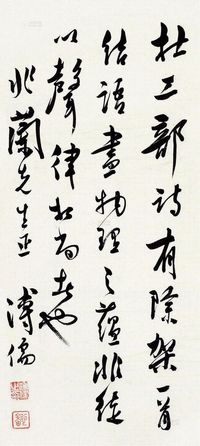 杜工部诗有除架一首
结语尽物理之蕴非徒
以声律相高者也
兆兰先生正
溥儒